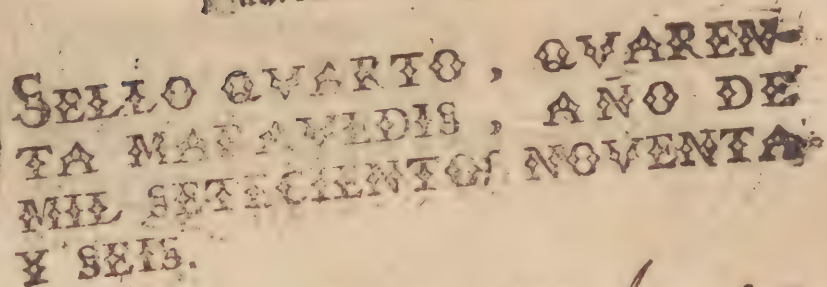 SELLO QVARTO, QVAREN-
TA MARAVEDIS, AÑO DE
MIL SETECIENTOS NOVENTA
Y SEIS.